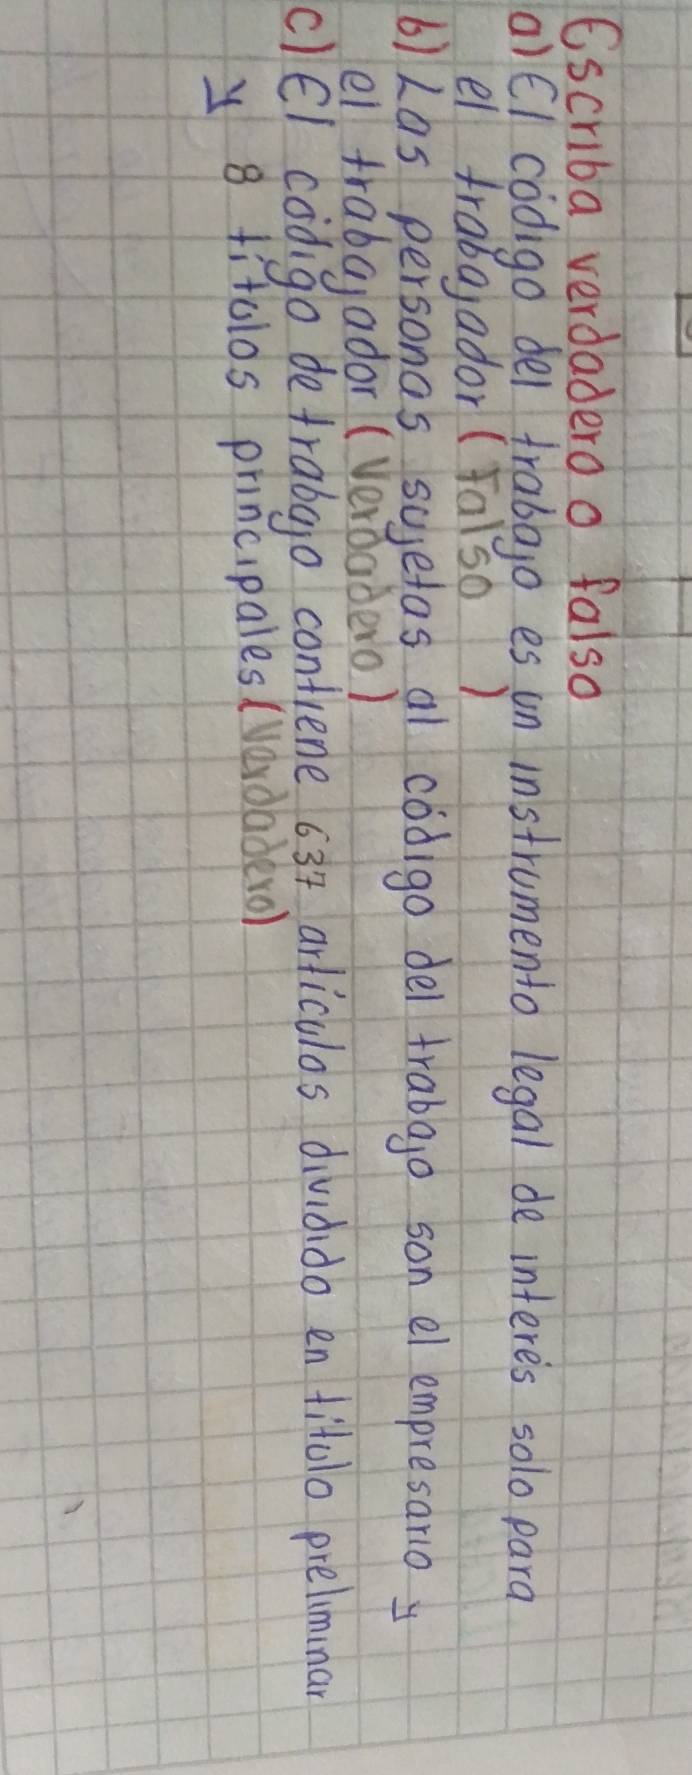 Escriba verdadero o falso
a) El código del trabajo es un instrumento legal de interés solo para
el trabajador (Falso)
b) Las personas sujetas al código del trabajo son el empresario y
el trabajador (Verdadero)
c) El código de trabajo contiene 637 artículos dividido en título preliminar
y 8 títulos principales (Verdadero)